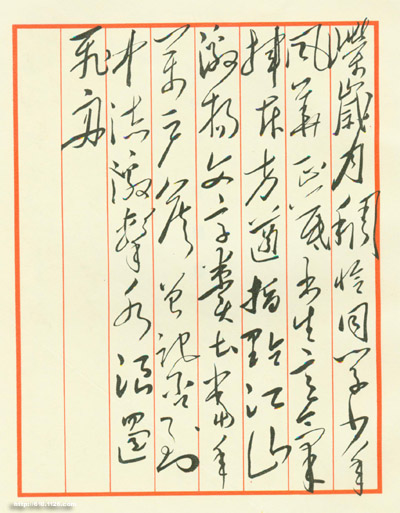 嶸歲月稠恰同學少年
风華正茂書生意氣
揮斥方遒指點江山
激揚文字糞土當年
萬户侯曾記否到
中流激擊水浪遏
飛舟